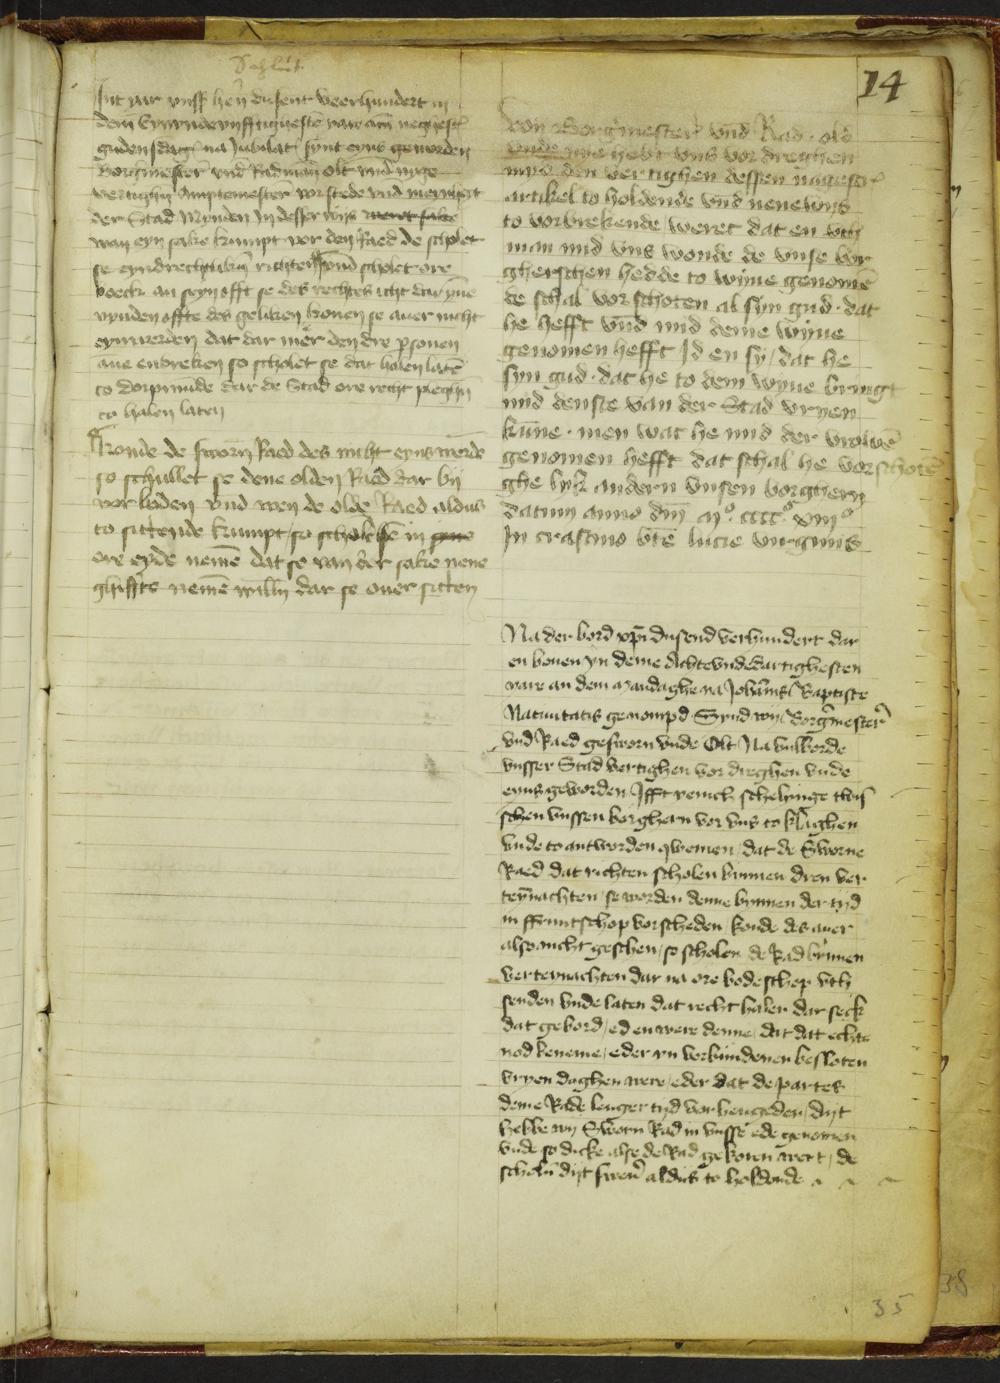 14
Int iar vnss heren dusent veerhundert in
dem eynvndevyfftigesten iare am negesten
gudensdage na Jubilate synt eyns geworden
Borgmester vnd Radmann olt vnd nyge
vertighen Amptmester vor stede vnd meynheit
der Stad Mynden In desser wys
wan eyn sake kumpt vor den Raed de scholet
se eyndrechtliken richten vnd scholet ore
boeck an seyn offt se des rechtes icht dar ynne
vynden offte des geliken konen se auer nicht
eynwerden dat dar mer den dre personen
ane enbreken so scholet se dat halen laten
to dorpmunde dar de Stad ore recht pleghen
to halen laten
Konde de sworn Raed des nicht eyns werde
so schullet se dene olden Raed dar by
vor boden vnd wen de olde Raed aldus
to sittende kumpt so scholet se in
ore eyde nemen dat se van der sake nene
ghiffte nemen willen dar se ouer sitten
Wy Borgmester vnd Rad old
vnde nye hebt vns vordreghen
myd den vertighen dessen nagescr
artikel to holdende vnd nenewys
to vorbrekende weret dat en vth
man mid vns wonde de vnse bor
gherschen hedde to wiue genomen
de schal vorschoten al syn gud dat
he hefft vnd mid deme wyue
genomen hefft Id en sy dat he
syn gud dat he to dem wyue bringt
mid denste van der Stad vryen
kunne men wat he mid der vrowen
genomen hefft dat schal he vorschoten
ghelyk andern vnsen borghern
datum anno dni mo cccco xviiio
In crastino bte lucie virginis
Na der bord xpi dusend verhundert dar
en bouen yn deme Achtevndedartighesten
iare an dem mandaghe na Johannis Baptiste
Natiuitatis genompd Synd wy Borgmester
vnd Raed gesworn vnde Olt Na vulborde
vnsser Stad vertighen vordreghen vnde
eyns geworden Ifft yenich schelinge twis
schen vnssen borghern vor vns to klaghen
vnde to antworden qwemen dat de Sworne
Raed dat richten scholen binnen dren ver
teynnachten se worden denne bynnen der tyd
in ffruntschop vorscheden konde des auer
also nicht geschen so scholen de Rad bynnen
verteynachten dar na ore bodeschop vth
senden vnde laten dat recht halen dar seck
dat gebord ed en were denne dat dat echte
nod beneme eder yn vorbundenen besloten
vryen daghen were eder dat de partes
deme Rade lenger tyd vorhengeden dyt
hebbe wy Sworn Rad in vnsse ede genomen
vnde so dicke alse de Rad gekoren wert de
scholen dyt swern aldus to holdende
35
38